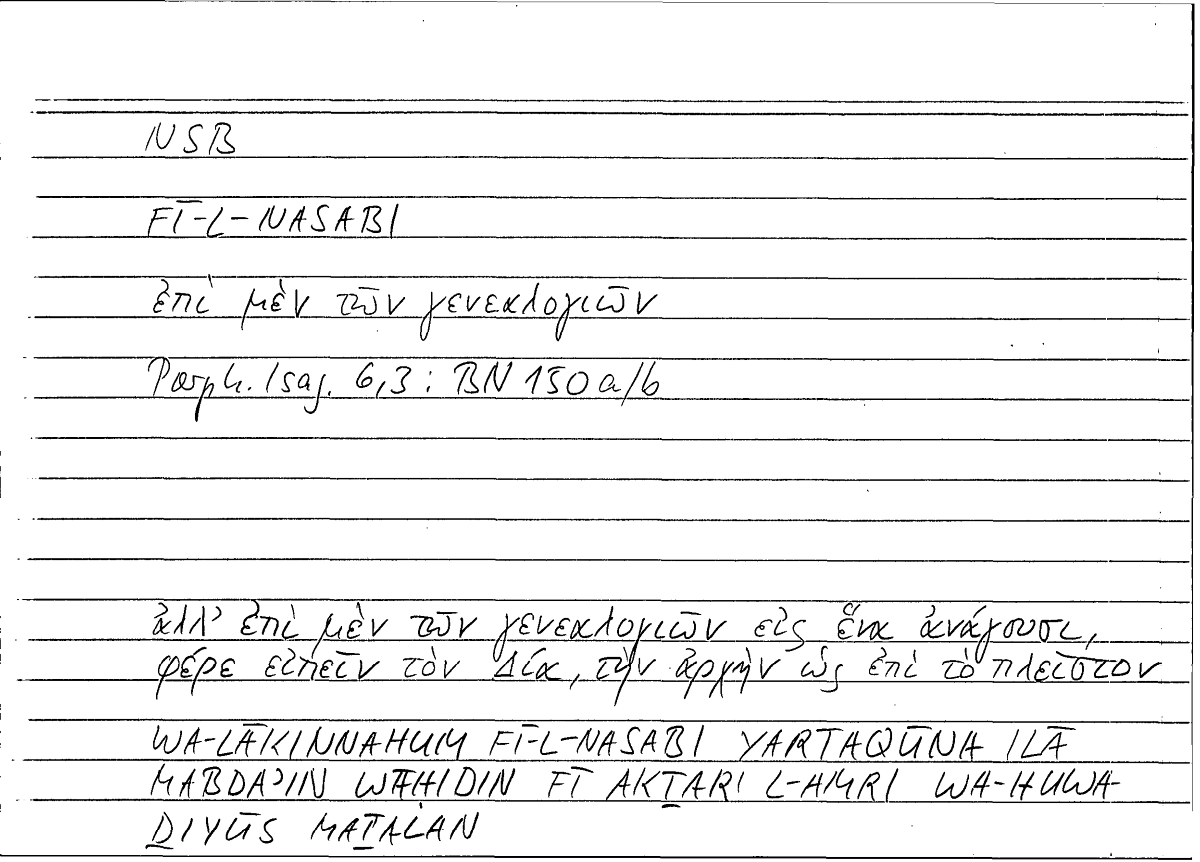 NSB
FĪ-L-NASABI
ἐπὶ μὲν τῶν γενεαλογιῶν
Porph. Isag. 6,3 : BN 150 a/b
ἀλλ' ἐπὶ μὲν τῶν γενεαλογιῶν εἰς ἕνα ἀνάγουσι,
φέρε εἰπεῖν τὸν Δία, τὴν ἀρχὴν ὡς ἐπὶ τὸ πλεῖστον
WA-LĀKINNAHUM FĪ-L-NASABI YARTAQŪNA ILĀ
MABDAʾIN WĀHIDIN FĪ AKṮARI L-AMRI WA-HUWA-
ḎIYŪS MAṮALAN